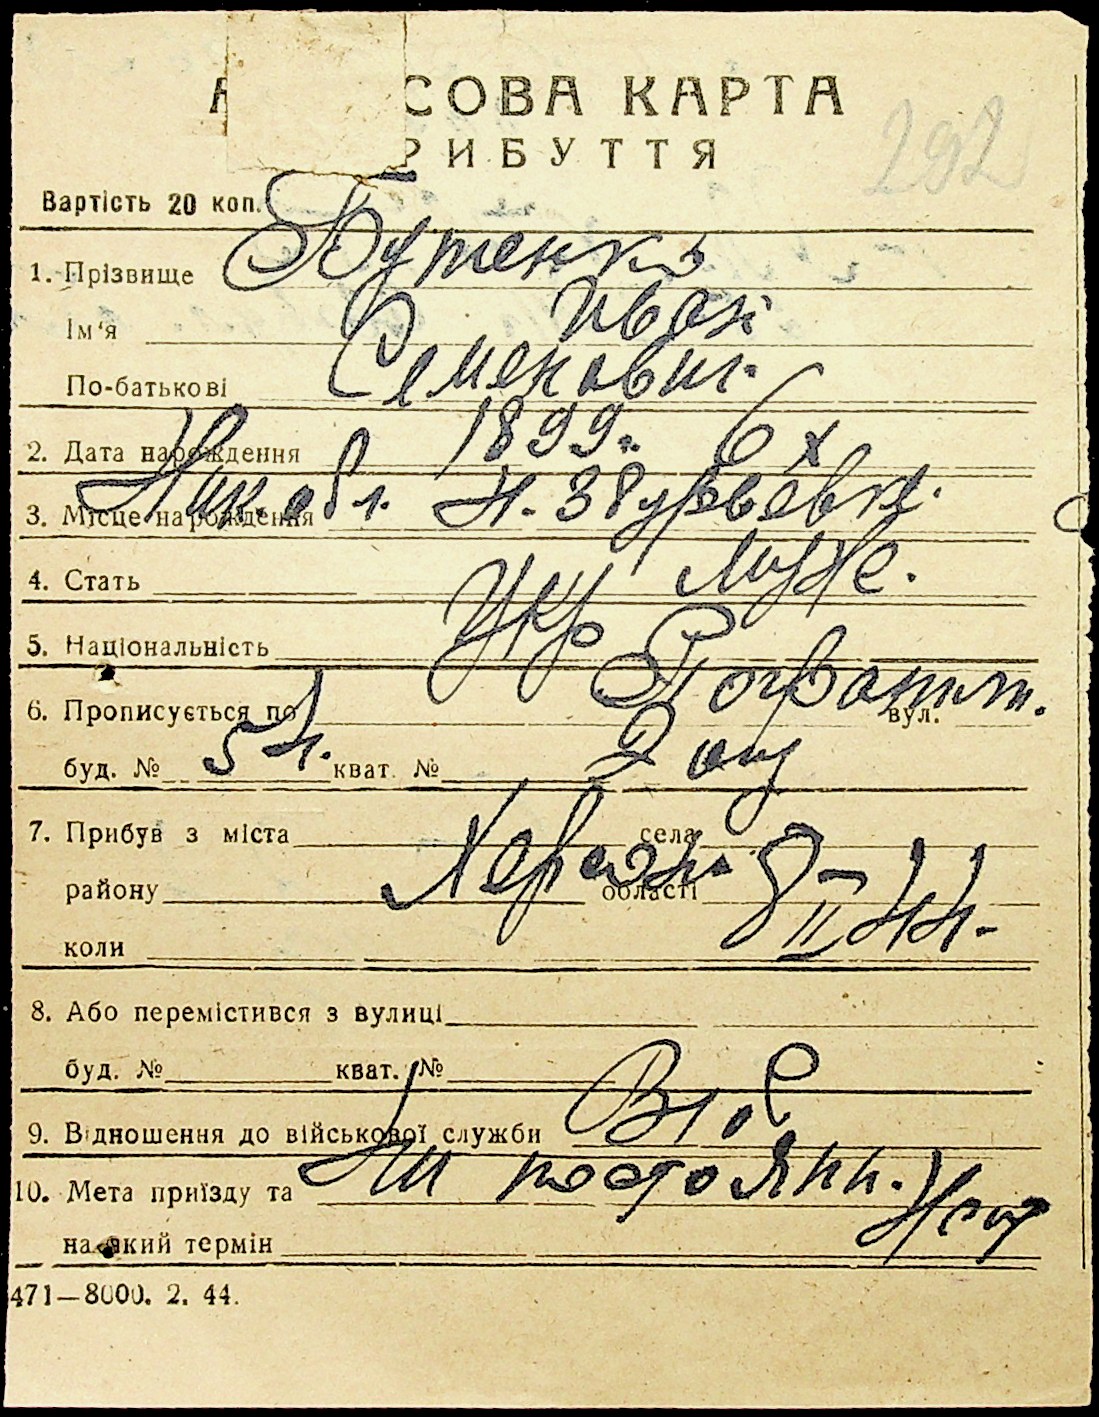 СОВА КАРТА
РИБУТТЯ
292
Вартість 20 коп.
1. Прізвище Бутенко
Ім'я Иван
По-батькові Семенович.
2. Дата народження 1899. 6 х
3. Місце народження Ник. обл. Н. Збурьевка.
4. Стать Муж.
5. Національність Укр
6. Прописується по Пограничн. вул.
буд. № 54. кват. №
7. Прибув з міста Херсон. села
району області
коли 8 II 44.
8. Або перемістився з вулиці
буд. № кват. №
9. Відношення до військової служби В/об
10. Мета приїзду та На постоянн.
на який термін
471—8000. 2. 44.